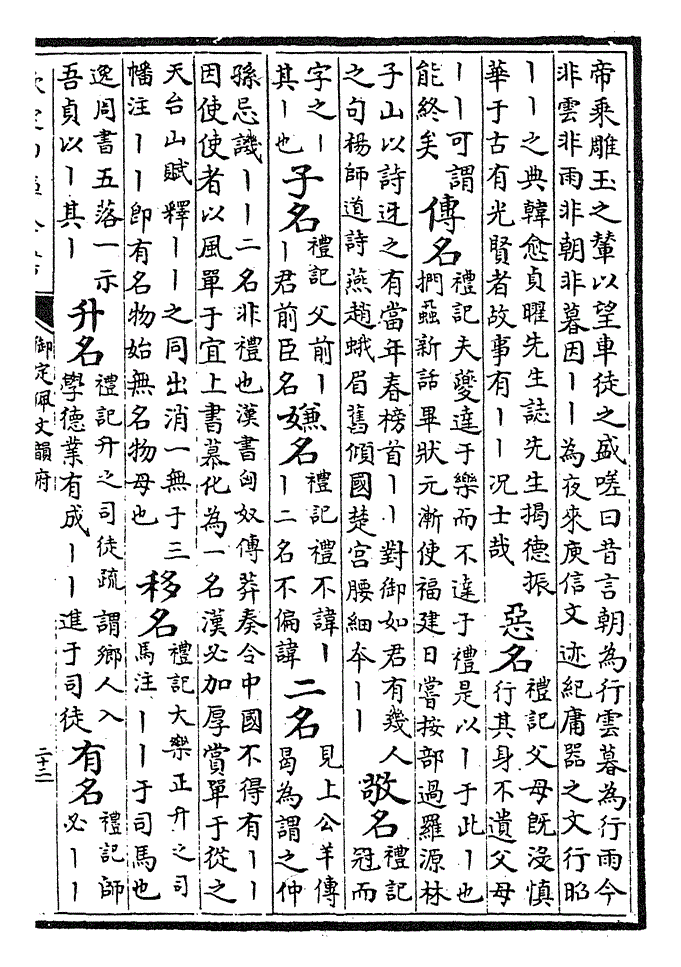 帝乘雕玉之輦以望車徒之盛嗟曰昔言朝為行雲暮為行雨今
非雲非雨非朝非暮因丨丨為夜來庾信文迹紀庸器之文行昭
丨丨之典韓愈貞曜先生誌先生揭德振
華于古有光賢者故事有丨丨况士哉
惡名
禮記父母既沒慎
行其身不遺父母
丨丨可謂
能終矣
傳名
禮記夫夔達于樂而不達于禮是以丨于此丨也
捫蝨新話畢狀元漸使福建日嘗按部過羅源林
子山以詩迓之有當年春榜首丨丨對御如君有幾人
之句楊師道詩燕趙蛾眉舊傾國楚宮腰細夲丨丨
敬名
禮記
冠而
字之丨
其丨也
子名
禮記父前丨
丨君前臣名
嫌名
禮記禮不諱丨
丨二名不偏諱
二名
見上公羊傳
曷為謂之仲
孫忌譏丨丨二名非禮也漢書匈奴傳莽奏令中國不得有丨丨
因使使者以風單于宜上書慕化為一名漢必加厚賞單于從之
天台山賦釋丨丨之同出消一無于三
幡注丨丨即有名物始無名物母也
移名
禮記大樂正升之司
馬注丨丨于司馬也
逸周書五落一示
吾貞以丨其丨
升名
禮記升之司徒疏謂鄉人入
學德業有成丨丨進于司徒
有名
禮記師
必丨丨
御定佩文韻府
二十二